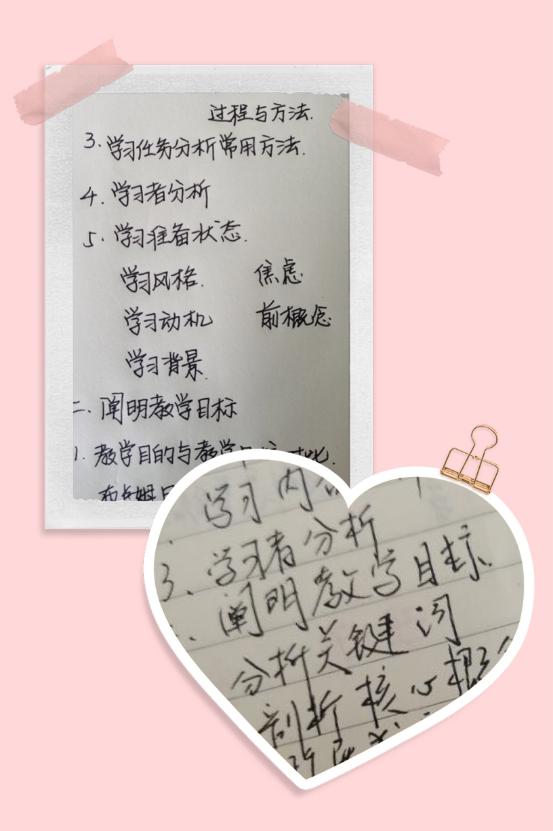 过程与方法.
3. 学习任务分析常用方法.
4. 学习者分析
5. 学习准备状态.
学习风格. 焦虑
学习动机 前概念
学习背景.
二、阐明教学目标
1. 教学目的与教学
学习内
3、学习者分析
阐明教学目标.
分析关键词
剖析核心概